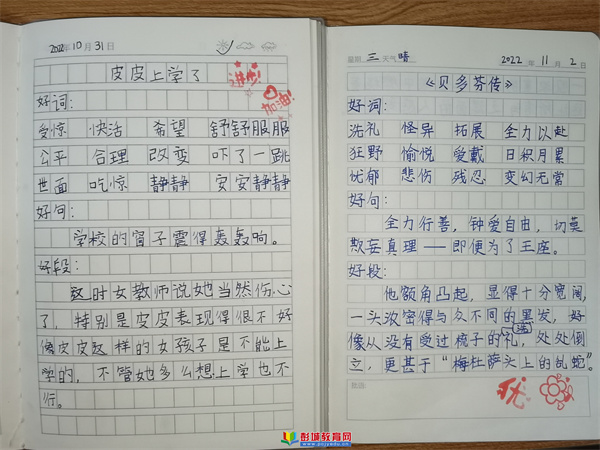 2022年10月31日
皮皮上学了
进步!
加油!
好词:
受惊 快活 希望 舒舒服服
公平 合理 改变 吓了一跳
世面 吃惊 静静 安安静静
好句:
学校的窗子震得轰轰响。
好段:
这时女教师说她当然伤心
了,特别是皮皮表现得很不好
像皮皮这样的女孩子是不能上
学的,不管她多么想上学也不
行。
星期 三 天气 晴 2022年11月2日
《贝多芬传》
好词:
洗礼 怪异 拓展 全力以赴
狂野 愉悦 爱戴 日积月累
忧郁 悲伤 残忍 变幻无常
好句:
全力行善,钟爱自由,切莫
欺妄真理——即便为了王座。
好段:
他额角凸起,显得十分宽阔,
一头浓密得与众不同的黑发,好
像从没有受过梳子的礼,处处倒
立,更甚于“梅杜萨头上的乱蛇”。
批注:
优
彭城教育网